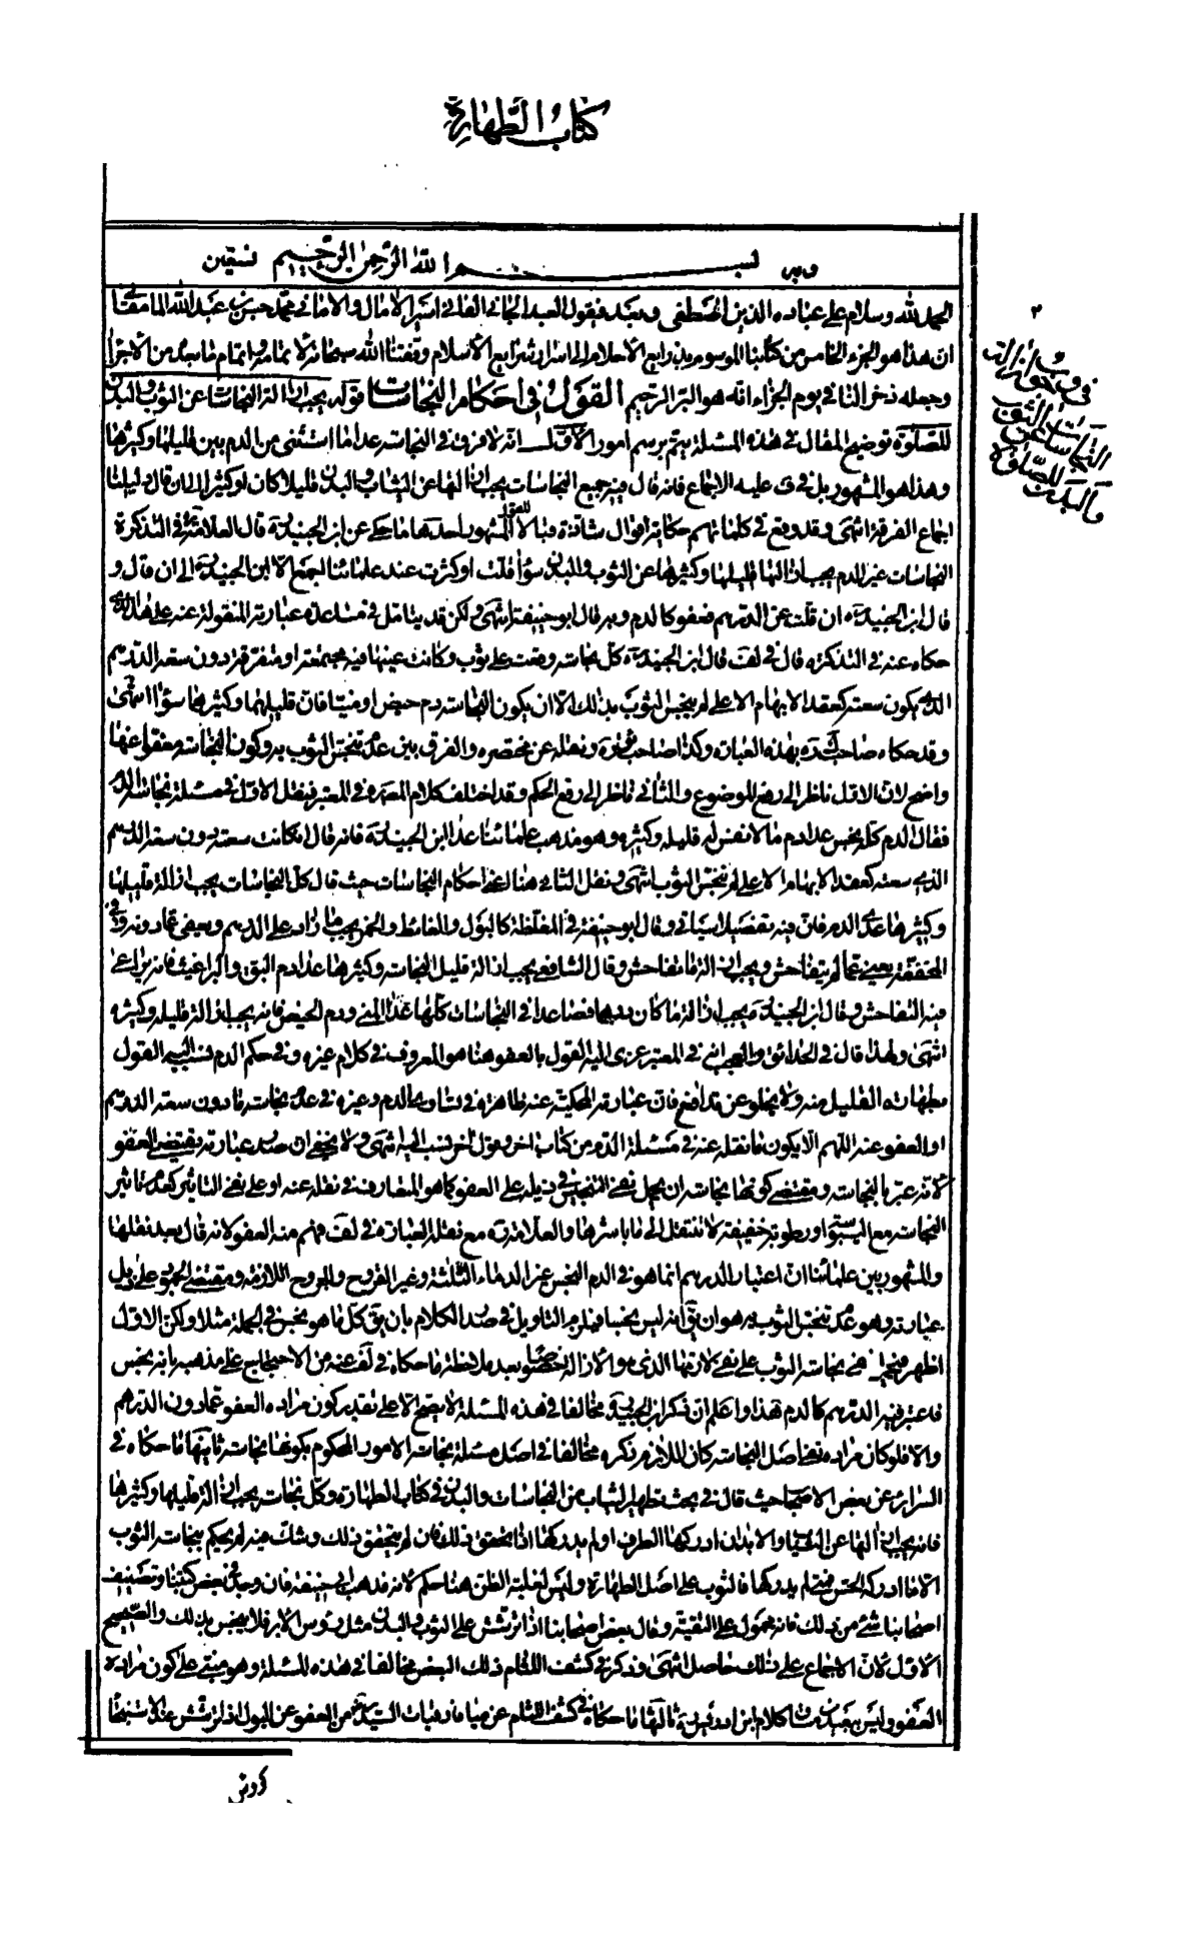 كتاب الطهارة
وبه بسم الله الرحمن الرحيم نستعين
الحمد لله وسلام على عباده الذين اصطفى وبعد فيقول العبد الجاني الفاني اسير الآمال والاماني محمد حسن بن عبد الله المامقاني
ان هذا هو الجزء الخامس من كتابنا الموسوم بذرايع الاحلام الى اسرار شرايع الاسلام وفقنا الله سبحانه لاتمامه واتمام ما بعده من الاجزاء
وجعله ذخرا لنا في يوم الجزاء انه هو البر الرحيم القول في احكام النجاسات قوله يجب ازالة النجاسات عن الثوب والبدن
للصلوة توضيح المقال في هذه المسئلة يتم برسم امور الاول انه لا فرق في النجاسة عدا ما استثنى من الدم بين قليلها وكثيرها
وهذا هو المشهور بل في ف عليه الاجماع فانه قال فيه جميع النجاسات يجب ازالتها عن الثياب والبدن قليلا كان او كثيرا الى ان قال دليلنا
اجماع الفرقة انتهى وقد وقع في كلماتهم حكاية اقوال شاذة مقابلة للقول المشهور احدها ما حكى عن ابن الجنيد ره قال العلامة ره في التذكرة
النجاسات غير الدم يجب ازالتها قليلها وكثيرها عن الثوب والبدن سواء قلت او كثرت عند علمائنا اجمع الا ابن الجنيد ره الى ان قال و
قال ابن الجنيد ره ان قلت عن الدرهم فعفو كالدم وبه قال ابو حنيفة انتهى ولكن قد يتامل في مساعدة عبارته المنقولة عنه على هذا الذي
حكاه عنه في التذكرة قال في لف قال ابن الجنيد ره كل نجاسة وقعت على ثوب وكانت عينها فيه مجتمعة او متفرقة دون سعة الدرهم
الذي يكون سعته كعقد الابهام الاعلى لم ينجس الثوب بذلك الا ان يكون النجاسة دم حيض او منيا فان قليلهما وكثيرهما سواء انتهى
وقد حكاه صاحب ك ره بهذه العبارة وكذا صاحب ونقله عن مختصره والفرق بين عدم تنجس الثوب به وكون النجاسة معفوا عنها
واضح لان الاول ناظر الى رفع الموضوع والثاني ناظر الى رفع الحكم وقد اختلف كلام المعتبر فنقل الاول في مسئلة نجاسة الدم
فقال الدم كله نجس عدا دم ما لا نفس له قليله وكثيره وهو مذهب علمائنا عدا ابن الجنيد ره فانه قال ان كانت سعته دون سعة الدرهم
الذي سعته كعقد الابهام الاعلى لم ينجس الثوب انتهى ونقل الثاني هنا اعني احكام النجاسات حيث قال كل النجاسات يجب ازالة قليلها
وكثيرها عدا الدم فان فيه تفصيلا سياتي وقال ابو حنيفة في المغلظة كالبول والغائط والخمر يجب ما زاد على الدرهم ويعفى عما دونه وفي
المخففة يعفى عما لم يتفاحش ويجب ازالة ما تفاحش وقال الشافعي يجب ازالة قليل النجاسة وكثيرها عدا دم البق والبراغيث فانه يراعى
فيه التفاحش وقال ابن الجنيد ره يجب ازالة ما كان درهما فصاعدا في النجاسات كلها عدا المني ودم الحيض فانه يجب ازالة قليله وكثيره
انتهى ولهذا قال في الحدائق والعجب انه في المعتبر عزى اليه القول بالعفو هنا هو المعروف في كلام غيره وفي حكم الدم نسب اليه القول
بطهارة القليل منه ولا يخلو عن تدافع فان عبارته المحكية عنه ظاهرة في تساوي الدم وغيره في عدم نجاسة ما دون سعة الدرهم
او العفو عنه اللهم الا يكون ما نقله عنه في مسئلة الدم من كتاب اخر وقول اخر نسب اليه انتهى ولا يخفى ان صدر عبارته يقتضي العفو
لانه عبر بالنجاسة ومقتضى كونها نجاسة ان يحمل نفي التنجس في ذيله على العفو كما هو المتعارف في نقله عنه او على نفي التاثير كعدم تاثير
النجاسة مع اليبوسة او رطوبة خفيفة لا تنتقل الى ما باشرها والعلامة ره مع نقله العبارة في لف فهم منه العفو لانه قال بعد نقلها
والمشهور بين علمائنا ان اعتبار الدرهم انما هو في الدم النجس غير الدماء الثلثة وغير القروح والجروح اللازمة ومقتضى على ذيل
عبارته وهو عدم تنجس الثوب به هو ان يق انه ليس نجسا فيلزم التاويل في صدر الكلام بان يق كل ما هو نجس في الجملة مثلا ولكن الاول
اظهر نفي نجاسة الثوب على نفي لازمها الذي هو الازالة خصوصا بعد ملاحظة ما حكاه في لف عنه من الاحتجاج على مذهبه بانه نجس
فاعتبر فيه الدرهم كالدم هذا واعلم ان ذكر ابن الجنيد ره مخالفا في هذه المسئلة لا يصح الا على تقدير كون مراده العفو عما دون الدرهم
والا فلو كان مراده نفي اصل النجاسة كان اللازم ذكره مخالفا في اصل مسئلة نجاسة الامور المحكوم بكونها نجاسة ثانيها ما حكاه في
السرائر عن بعض الاصحاب حيث قال في بحث تطهير الثياب من النجاسات والبدن في كتاب الطهارة وكل نجاسة يجب ازالة قليلها وكثيرها
فانه يجب ازالتها عن الثياب والابدان ادركها الطرف او لم يدركها اذا تحقق ذلك فان لم يتحقق ذلك وشك فيه لم يحكم بنجاسة الثوب
الا ما ادركه الحس فمتى لم يدركها فالثوب على اصل الطهارة وليس لغلبة الظن هنا حكم لانه مذهب ابي حنيفة فان وجد في بعض كتبنا وتصنيف
اصحابنا شئ من ذلك فانه محمول على التقية وقال بعض اصحابنا اذا ترشش على الثوب والبدن مثل رؤس الابر فلا ينجس بذلك والصحيح
الاول لان الاجماع على ذلك حاصل انتهى وذكر في كشف اللثام ذلك البعض مخالفا في هذه المسئلة وهو مبنى على كون مراده
العفو وليس ببعيد كلام ابن ادريس ره ثالثها ما حكاه في كشف اللثام عن ميافارقيات السيد ره من العفو عن البول اذا ترشش عند الاستنجاء
في وجوب ازالة
النجاسات عن الثوب
والبدن للصلوة
٢
كرؤس